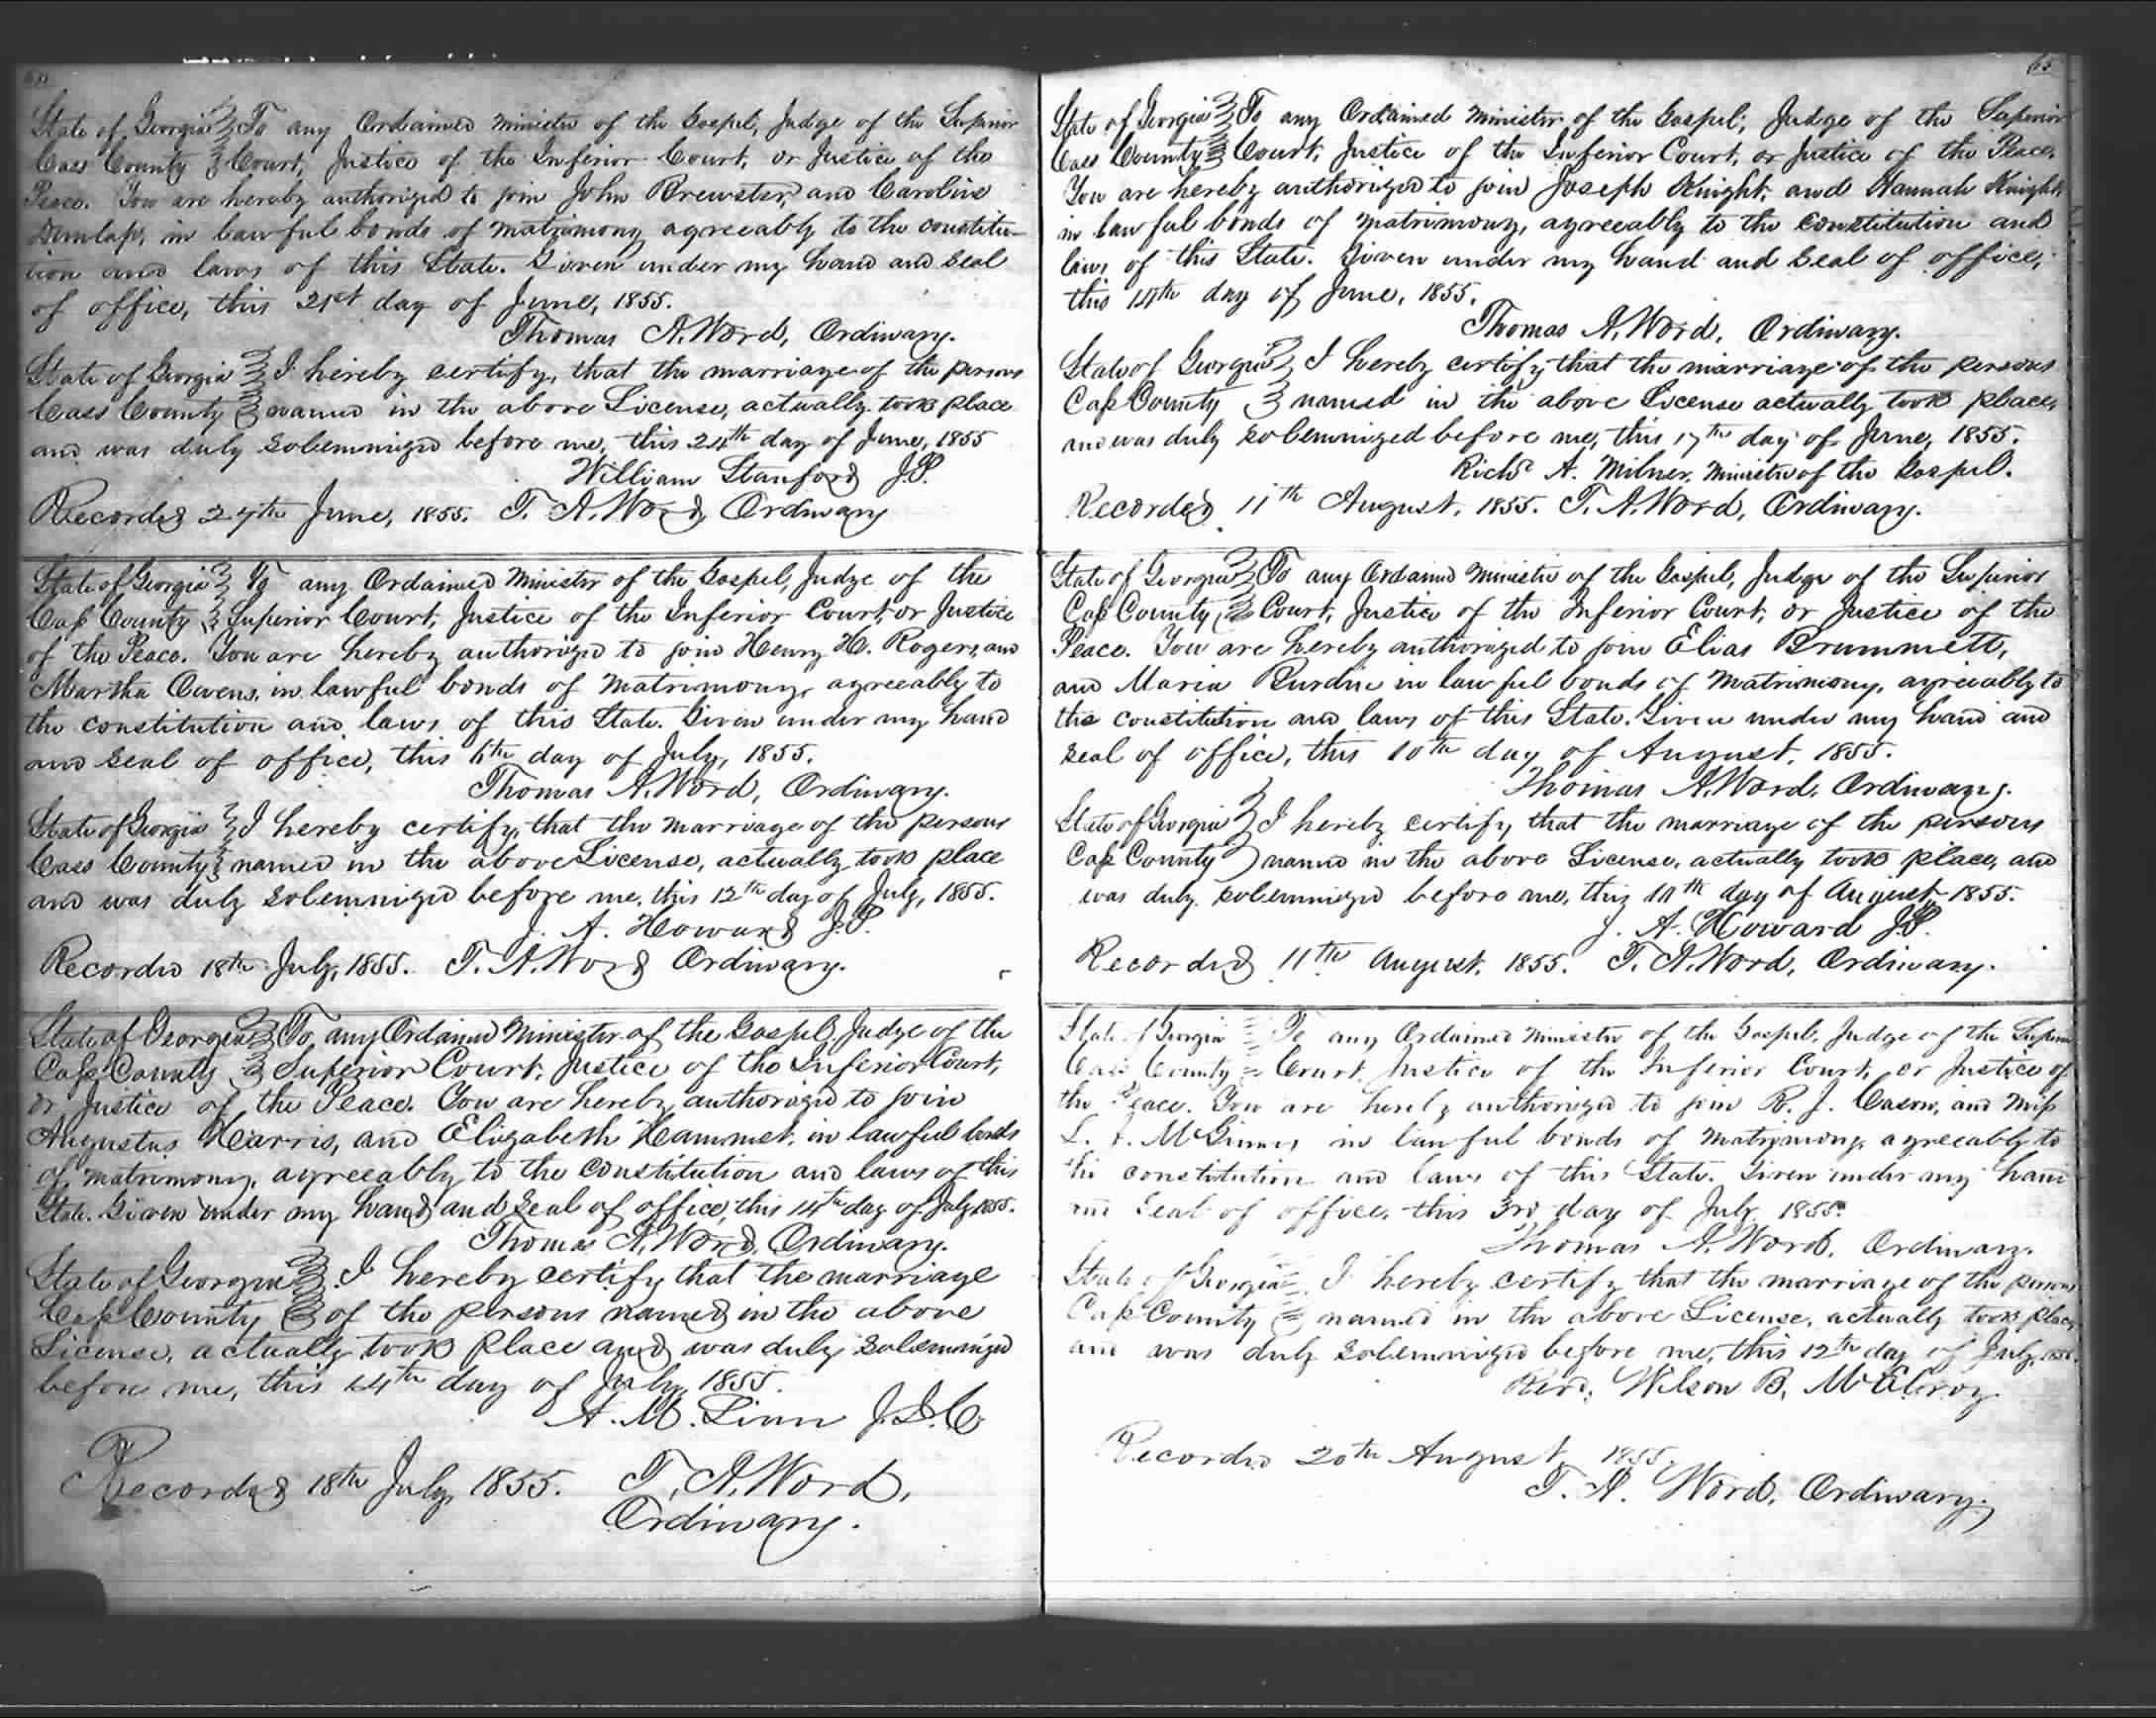 State of Georgia To any Ordained Minister of the Gospel, Judge of the Superior
Cass County Court, Justice of the Inferior Court, or Justice of the
Peace. You are hereby authorized to join John Brewster, and Caroline
Dunlap, in lawful bonds of matrimony agreeably to the constitu-
tion and laws of this State. Given under my hand and seal
of office, this 21st day of June, 1855.
Thomas A. Word, Ordinary.
State of Georgia I hereby certify, that the marriage of the persons
Cass County named in the above License, actually took place
and was duly solemnized before me, this 24th day of June, 1855
William Stanford J.P.
Recorded June, 1855. T. A. Word Ordinary
State of Georgia To any Ordained Minister of the Gospel, Judge of the
Cass County Superior Court, Justice of the Inferior Court, or Justice
of the Peace. You are hereby authorized to join Henry H. Rogers, and
Martha Owens, in lawful bonds of matrimony, agreeably to
the constitution and laws of this State. Given under my hand
and seal of office, this day of July, 1855.
Thomas A. Word, Ordinary.
State of Georgia I hereby certify, that the marriage of the persons
Cass County named in the above License, actually took place
and was duly solemnized before me, this 12th day of July, 1855.
J. A. Howard J.P.
Recorded 18th July, 1855. T. A. Word Ordinary.
State of Georgia To any Ordained Minister of the Gospel, Judge of the
Cass County Superior Court, Justice of the Inferior Court,
or Justice of the Peace. You are hereby authorized to join
Augustus Harris, and Elizabeth Hammet, in lawful bonds
of matrimony, agreeably to the constitution and laws of this
State. Given under my hand and seal of office, this 14th day of July 1855.
Thomas A. Word, Ordinary.
State of Georgia I hereby certify that the marriage
Cass County of the persons named in the above
License, actually took place and was duly solemnized
before me, this 14th day of July, 1855.
A. M. Linn J.I.C
Recorded 18th July, 1855. T. A. Word,
Ordinary.
65
State of Georgia To any Ordained Minister of the Gospel, Judge of the Superior
Cass County Court, Justice of the Inferior Court, or Justice of the Peace.
You are hereby authorized to join Joseph Knight, and Hannah Knight
in lawful bonds of matrimony, agreeably to the constitution and
laws of this State. Given under my hand and seal of office,
this 14th day of June, 1855.
Thomas A. Word, Ordinary.
State of Georgia I hereby certify that the marriage of the persons
Cass County named in the above License actually took place,
and was duly solemnized before me, this 17th day of June, 1855.
Richd A. Milner, Minister of the Gospel.
Recorded 11th August, 1855. T. A. Word, Ordinary.
State of Georgia To any Ordained Minister of the Gospel, Judge of the Superior
Cass County Court, Justice of the Inferior Court, or Justice of the
Peace. You are hereby authorized to join Elias Brummett,
and Maria Burdine in lawful bonds of matrimony, agreeably to
the constitution and laws of this State. Given under my hand and
seal of office, this 10th day of August, 1855.
Thomas A. Word, Ordinary.
State of Georgia I hereby certify that the marriage of the persons
Cass County named in the above License, actually took place, and
was duly solemnized before me, this day of August, 1855.
J. A. Howard J.P.
Recorded 11th August, 1855. T. A. Word, Ordinary.
State of Georgia To any Ordained Minister of the Gospel, Judge of the Superior
Cass County Court, Justice of the Inferior Court, or Justice of
the Peace. You are hereby authorized to join R. J. Cason, and Miss
L. McGinnis in lawful bonds of matrimony, agreeably to
the constitution and laws of this State. Given under my hand
and seal of office, this 3rd day of July 1855.
Thomas A. Word, Ordinary.
State of Georgia I hereby certify that the marriage of the persons
Cass County named in the above License, actually took place,
and was duly solemnized before me, this 12th day of July, 1855.
Revd. Wilson B. McElroy.
Recorded 20th August 1855.
T. A. Word, Ordinary.